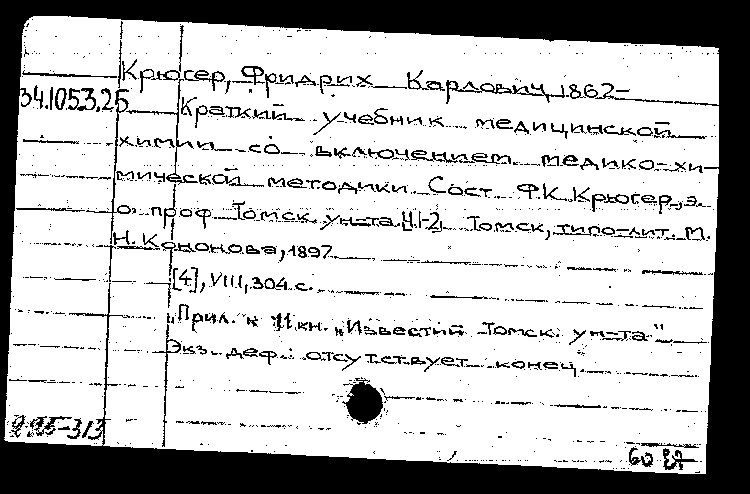 Крюгер, Фридрих Карлович, 1862-
34.1053.25 Краткий учебник медицинской
химии со включением медико-хи-
мической методики. Сост. Ф.К. Крюгер, э.
о. проф. Томск. ун-та. Ч.1-2. Томск, типо-лит. М.
Н. Кононова, 1897.
[4], VIII, 304 с.
"Прил. к 11 кн. "Известий Томск. ун-та"
Экз. деф.: отсутствует конец.
60